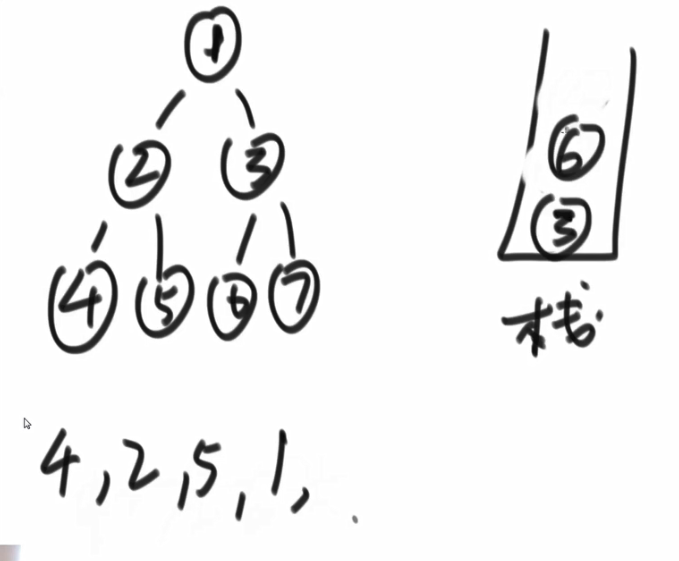 1
2 3
4 5 6 7
6
3
栈
4,2,5,1,